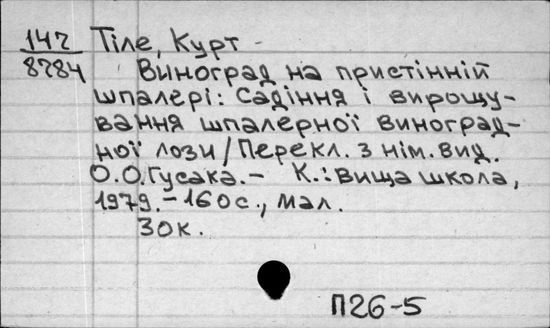 147 Тіле, Курт
8284
Виноград на пристінній
шпалері: Садіння і вирощу-
вання шпалерної виноград-
ної лози/Перекл. з нім. вид.
О.О.Гусака.- К.: Вища школа,
1979.-160с., мал.
30к.
П26-5